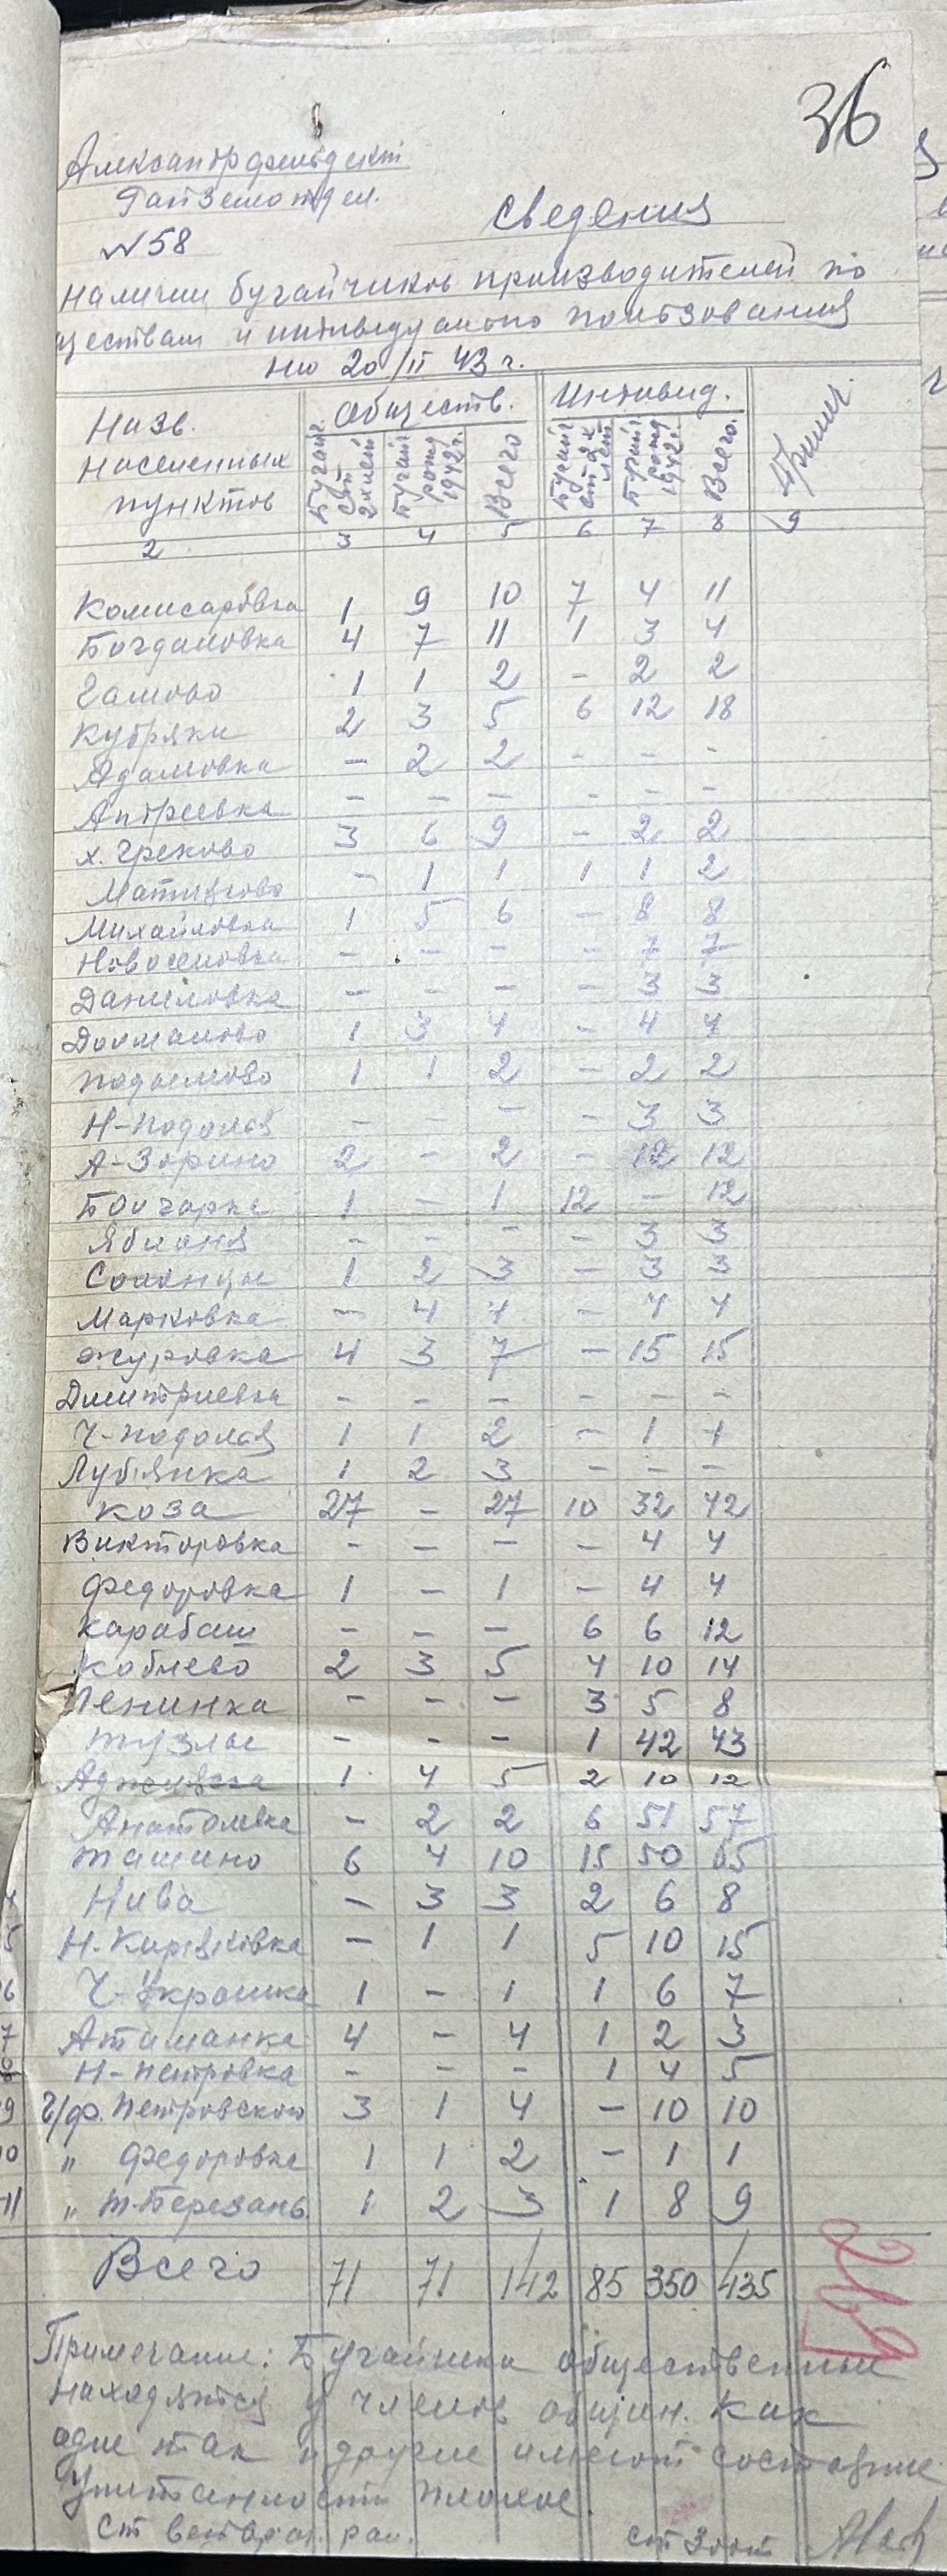 36
Александрфельдскт
Райземотдел.
№58
Сведения
наличии бугайчиков производителей по
ществам и индивидуально пользования
на 20/II 43 г.
Назв. населенных пунктов
Обществ.
Индивид.
Примеч.
Бугаи ст. 2х лет
Бугаи рожд 1942 г.
Всего
Бугаи ст 2х лет
Бугаи рожд 1942 г.
Всего.
2 3 4 5 6 7 8 9
Комисаровка 1 9 10 7 4 11
Богдановка 4 7 11 1 3 4
Гамово 1 1 2 - 2 2
Кубряки 2 3 5 6 12 18
Адамовка - 2 2 - - -
Андреевка - - - - - -
х. Греково 3 6 9 - 2 2
Матиясово - 1 1 1 1 2
Михайловка 1 5 6 - 8 8
Новоселовка - - - - 7 7
Даниловка - - - - 3 3
Долманово 1 3 4 - 4 4
Подымово 1 1 2 - 2 2
Н-Подоляя - - - - 3 3
А-Зорино 2 - 2 - 12 12
Болгарка 1 - 1 12 - 12
Яблоня - - - - 3 3
Солонцы 1 2 3 - 3 3
Марковка - 4 4 - 4 4
Журовка 4 3 7 - 15 15
Дмитриевка - - - - - -
Ч-Подоляя 1 1 2 - 1 1
Лубянка 1 2 3 - - -
Коза 27 - 27 10 32 42
Викторовка - - - - 4 4
Федоровка 1 - 1 - 4 4
Карабаш - - - 6 6 12
Коблево 2 3 5 4 10 14
Ленинка - - - 3 5 8
Тузлы - - - 1 42 43
Аджияска 1 4 5 2 10 12
Анатолиевка - 2 2 6 51 57
Ташино 6 4 10 15 50 65
Нива - 3 3 2 6 8
5 Н.Кирияковка - 1 1 5 10 15
6 Ч-Украинка 1 - 1 1 6 7
7 Атаманка 4 - 4 1 2 3
8 Н-Петровка - - - 1 4 5
9 Г/ф. Петровского 3 1 4 - 10 10
10 " Федоровка 1 1 2 - 1 1
11 " Т-Березань 1 2 3 1 8 9
Всего 71 71 142 85 350 435
Примечание: Бугайчики общественные
находятся у членов общин. Как
одне так и другие имеют состояние
упитанности плохое.
Ст ветврач. рай. ст Зоот